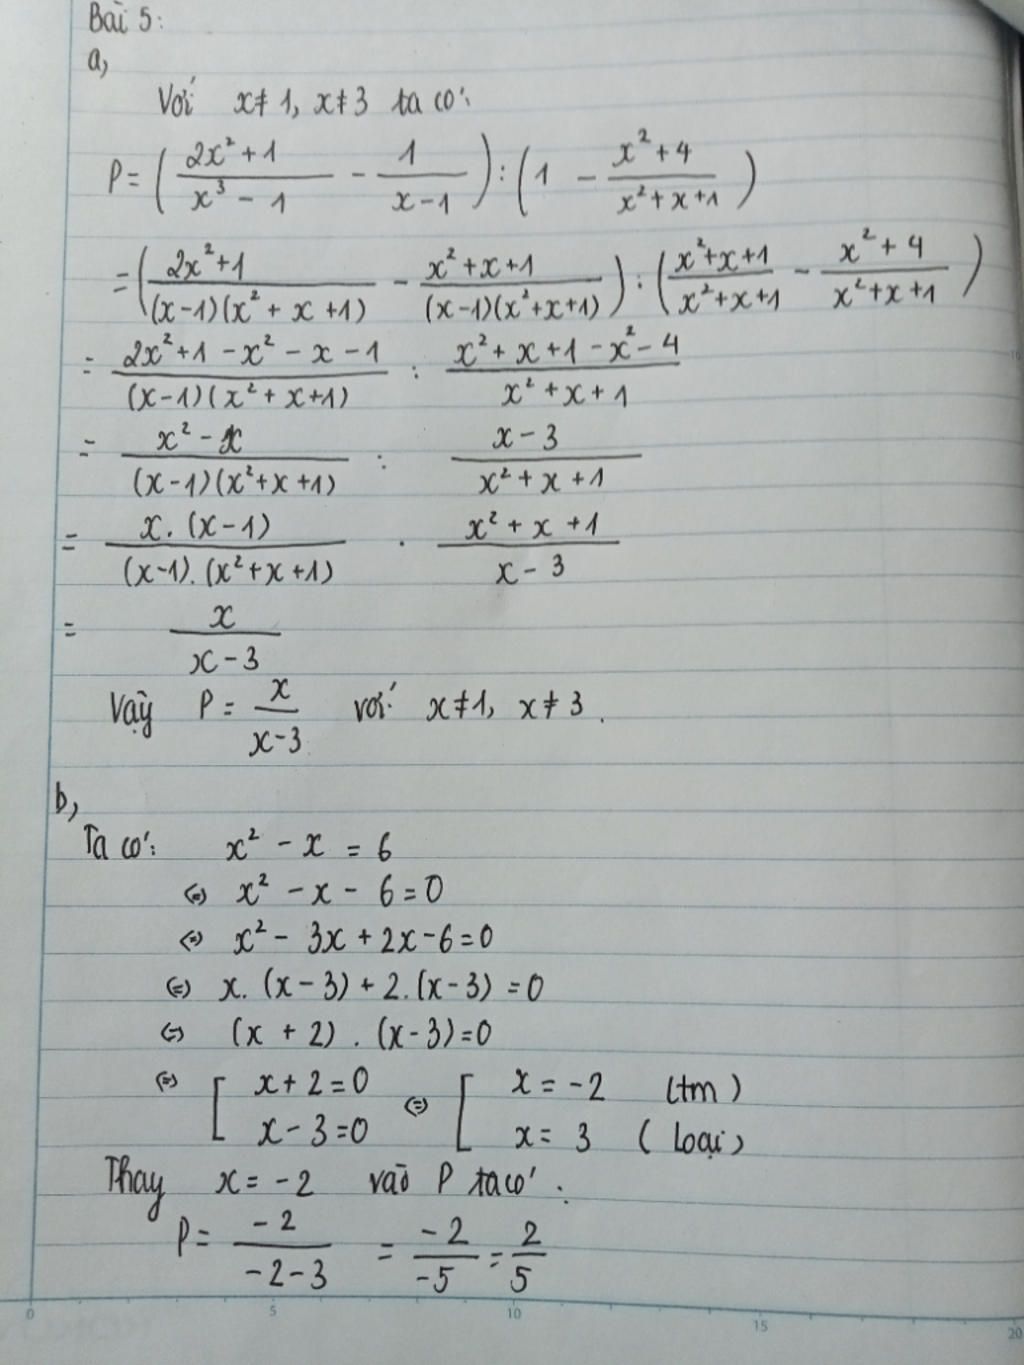 Bài 5:
a,
Với x ≠ 1, x ≠ 3 ta có:
P = ( (2x² + 1)/(x³ - 1) - 1/(x - 1) ) : ( 1 - (x² + 4)/(x² + x + 1) )
= ( (2x² + 1)/((x-1)(x² + x + 1)) - (x² + x + 1)/((x-1)(x² + x + 1)) ) : ( (x² + x + 1)/(x² + x + 1) - (x² + 4)/(x² + x + 1) )
= (2x² + 1 - x² - x - 1)/((x-1)(x² + x + 1)) : (x² + x + 1 - x² - 4)/(x² + x + 1)
= (x² - x)/((x-1)(x² + x + 1)) : (x - 3)/(x² + x + 1)
= (x. (x - 1))/((x-1). (x² + x + 1)) . (x² + x + 1)/(x - 3)
= x/(x - 3)
Vậy P = x/(x-3) với x ≠ 1, x ≠ 3.
b,
Ta có: x² - x = 6
⇔ x² - x - 6 = 0
⇔ x² - 3x + 2x - 6 = 0
⇔ x. (x - 3) + 2. (x - 3) = 0
⇔ (x + 2) . (x - 3) = 0
⇔ [ x + 2 = 0 ⇔ [ x = -2 (tm)
x - 3 = 0 x = 3 (loại)
Thay x = -2 vào P ta có:
P = -2/(-2-3) = -2/-5 = 2/5
0 5 10 15 20